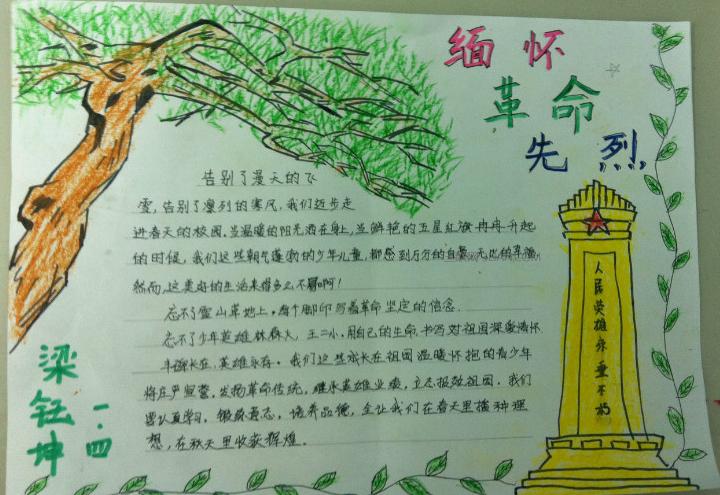 缅怀
革命
先烈
告别了漫天的飞
雪,告别了凛列的寒风,我们迈步走
进春天的校园。当温暖的阳光洒在身上,当鲜艳的五星红旗冉冉升起
的时候,我们这些朝气蓬勃的少年儿童,都感到万分的自豪、无比的幸福
然而,这美好的生活来得多么不易啊!
忘不了雪山草地上,每个脚印写着革命坚定的信念.
忘不了少年英雄林森火、王二小,用自己的生命,书写对祖国深厚情怀
长在,英雄永存。我们这些成长在祖国温暖怀抱的青少年
将庄严宣誓,发扬革命传统,继承英雄业绩,立志报效祖国,我们
要认真学习,锻炼意志,培养品德,全让我们在春天里播种理
想,在秋天里收获辉煌。
人民英雄永垂不朽
梁钰坤
一.四